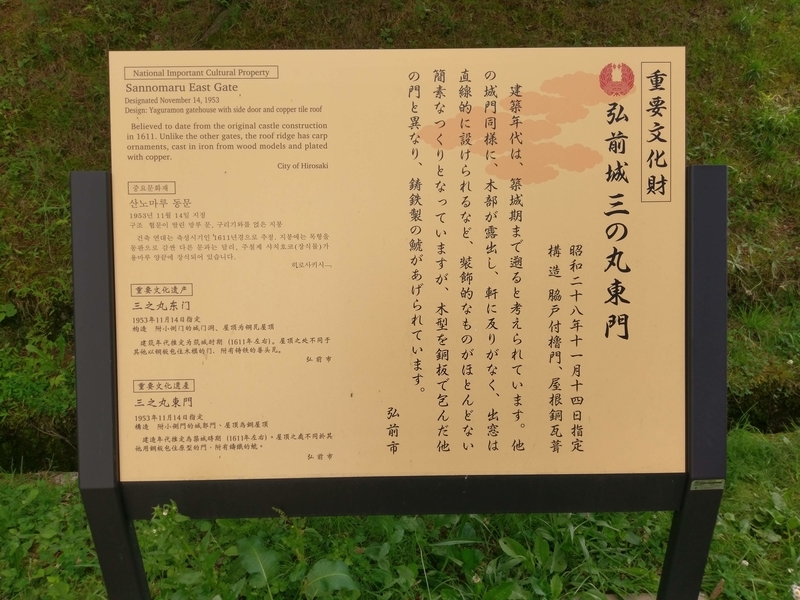 重要文化財
弘前城 三の丸東門
昭和二十八年十一月十四日指定
構 造 脇戸付櫓門、屋根銅瓦葺
建築年代は、築城期まで遡ると考えられています。他
の城門同様に、木部が露出し、軒に反りがなく、出窓は
直線的に設けられるなど、装飾的なものがほとんどない
簡素なつくりとなっていますが、木型を銅板で包んだ他
の門と異なり、鋳鉄製の鯱があげられています。
弘前市
National Important Cultural Property
Sannomaru East Gate
Designated November 14, 1953
Design: Yaguramon gatehouse with side door and copper tile roof
Believed to date from the original castle construction
in 1611. Unlike the other gates, the roof ridge has carp
ornaments, cast in iron from wood models and plated
with copper.
City of Hirosaki
중요문화재
산노마루 동문
1953년 11월 14일 지정
구조 협문이 딸린 망루 문, 구리기와를 얹은 지붕
건축 연대는 축성시기인 1611년경으로 추정. 지붕에는 목형을
동판으로 감싼 다른 문과는 달리, 주철제 샤치호코(장식물)가
용마루 양끝에 장식되어 있습니다.
히로사키시
重要文化遗产
三之丸东门
1953年11月14日指定
构造 附小侧门的城门洞、屋顶为铜瓦屋顶
建筑年代推定为筑城时期（1611年左右）。屋顶之处不同于
其他以铜板包住木模的门，附有铸铁的兽头瓦。
弘前市
重要文化遺產
三之丸東門
1953年11月14日指定
構造 附小側門的城郭門、屋頂為銅屋頂
建造年代推定為築城時期（1611年左右）。屋頂之處不同於其
他用銅板包住原型的門，附有鑄鐵的鯱。
弘前市